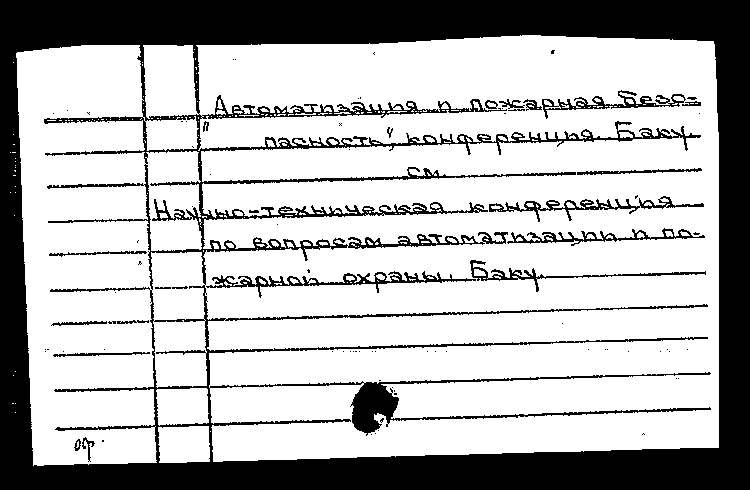 "Автоматизация и пожарная безо=
пасность", конференция. Баку.
см.
Научно=техническая конференция
по вопросам автоматизации и по-
жарной охраны. Баку.
обр.